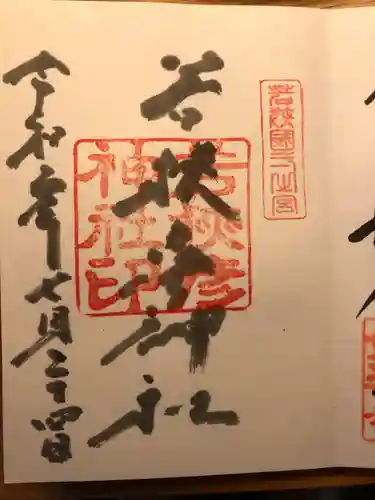 若狭國二之宮
若狭彦神社印
若狭姫神社
令和元年七月二十四日